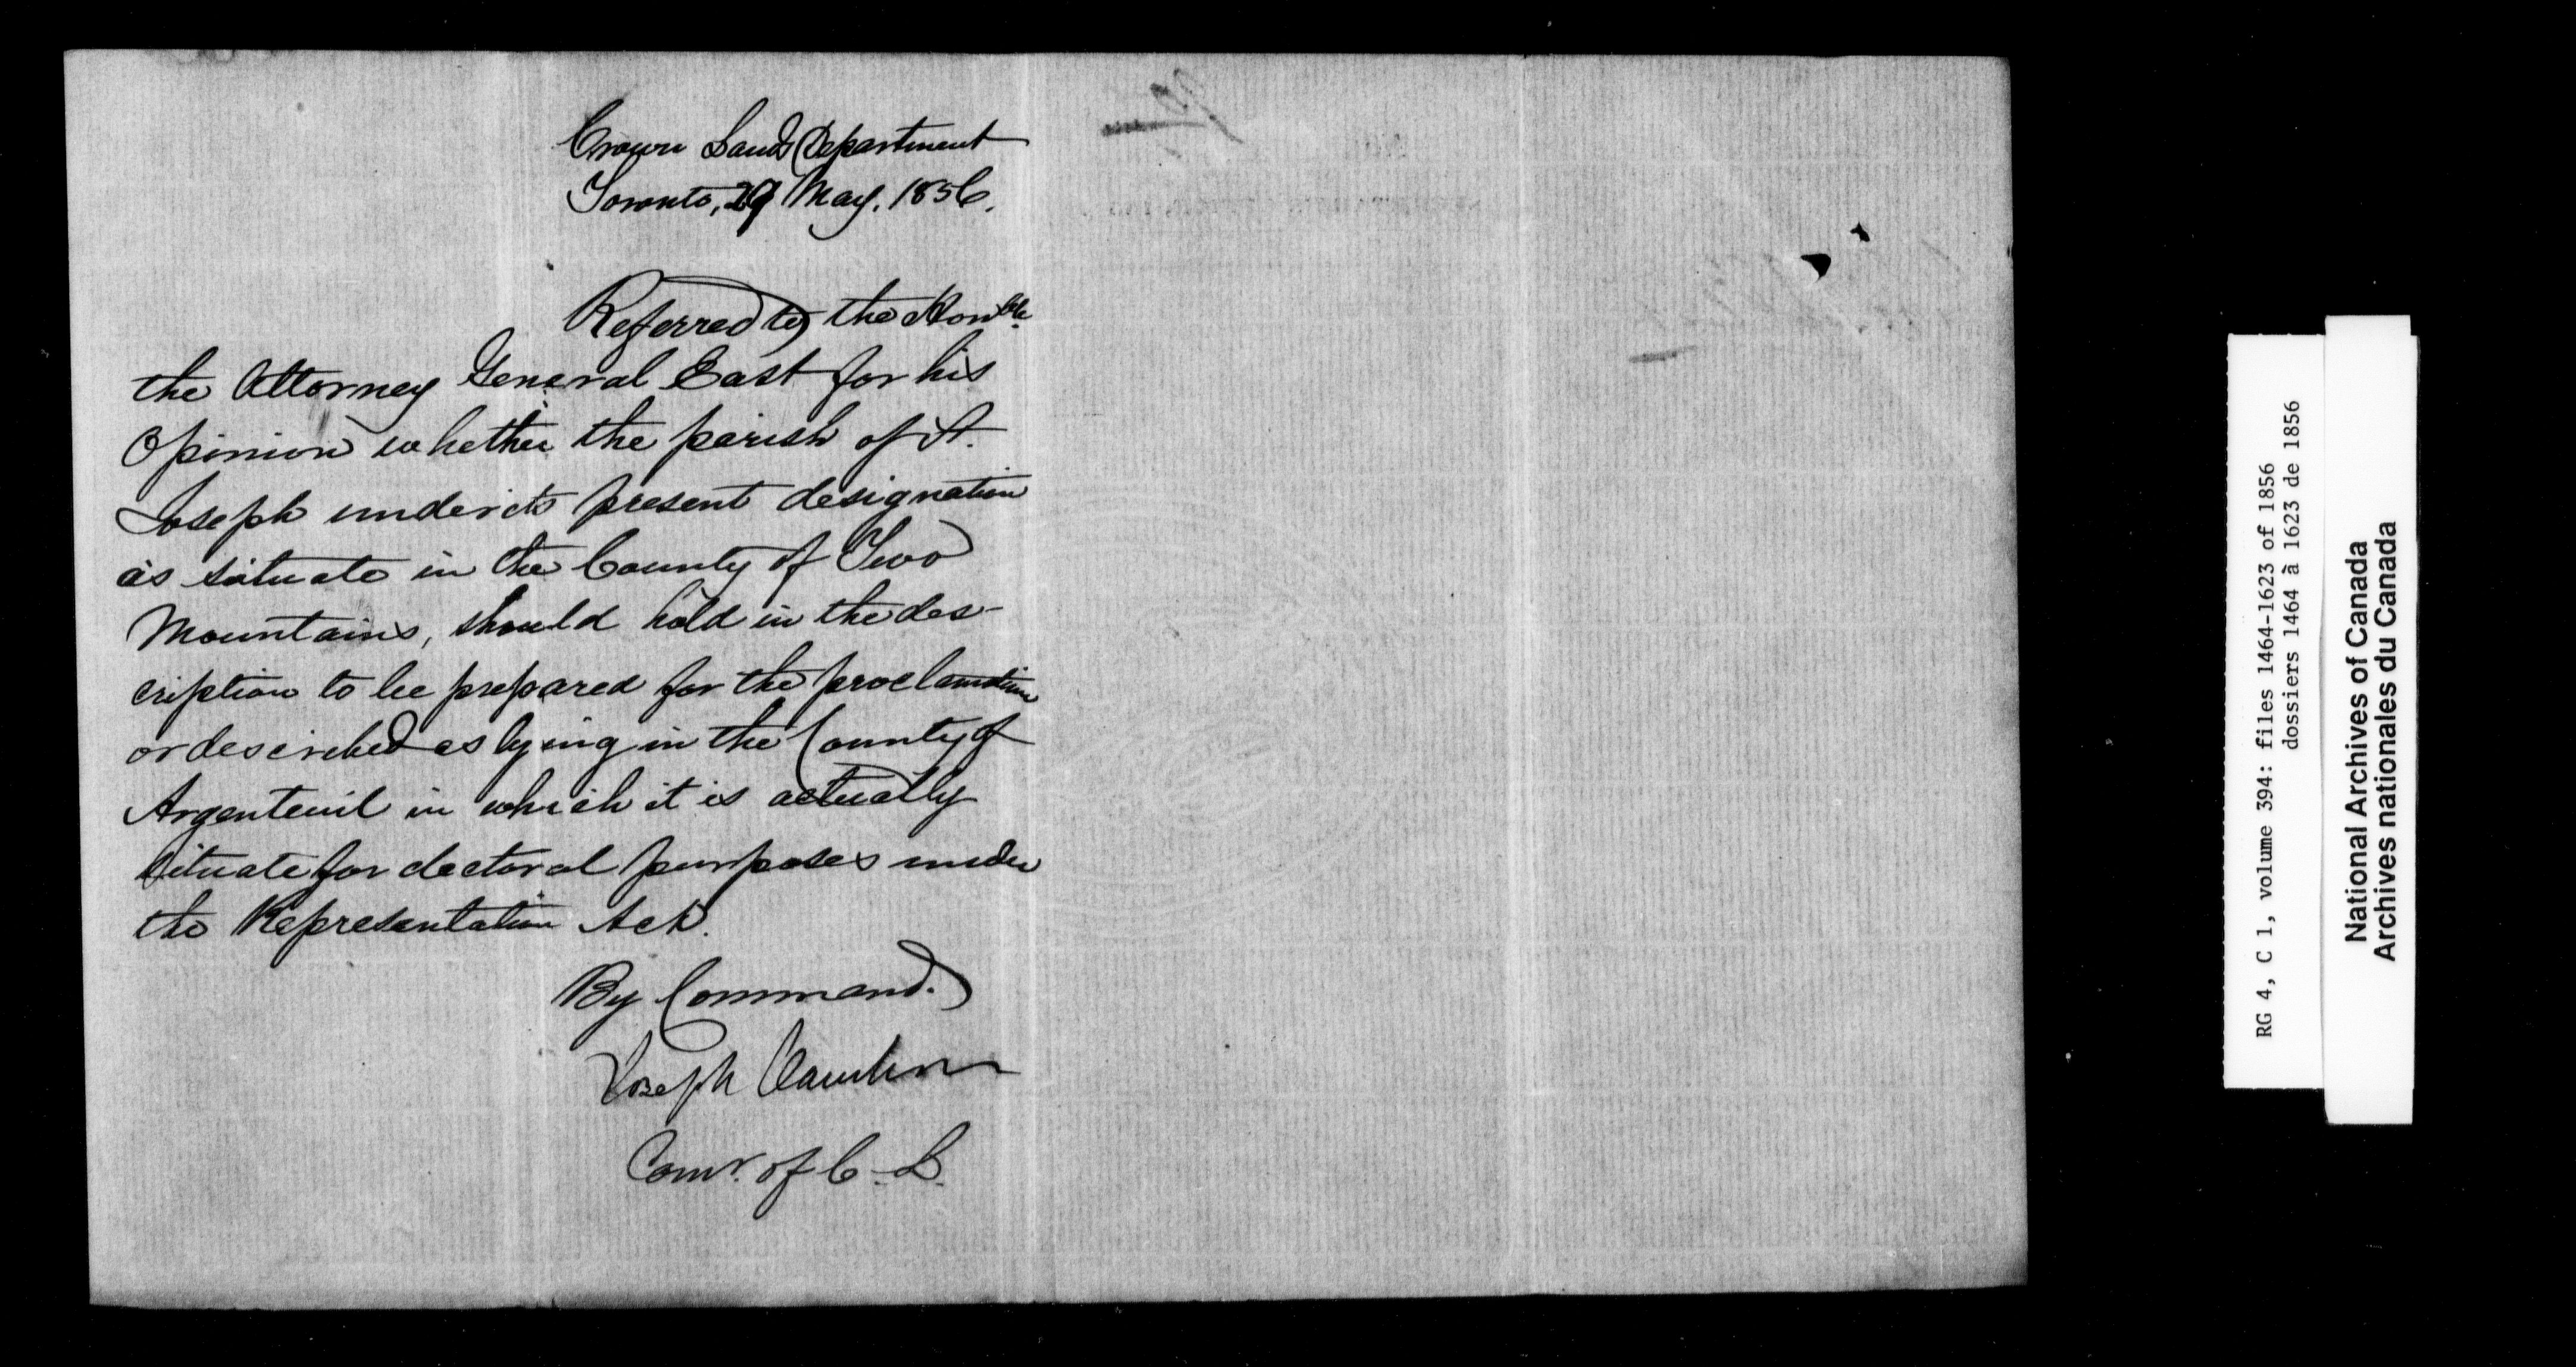 Crown Lands Department
Toronto, 29 May. 1856.
Referred to the Honble.
the Attorney General East for his
Opinion whether the parish of St.
Joseph under its present designation
as situate in the County of Two
Mountains, should hold in the des-
cription to be prepared for the proclamation
or described as lying in the County of
Argenteuil in which it is actually
situate for electoral purposes under
the Representation Act.
By Command.
Joseph Cauchon
Comr. of C. L.
RG 4, C 1, volume 394: files 1464-1623 of 1856
dossiers 1464 à 1623 de 1856
National Archives of Canada
Archives nationales du Canada